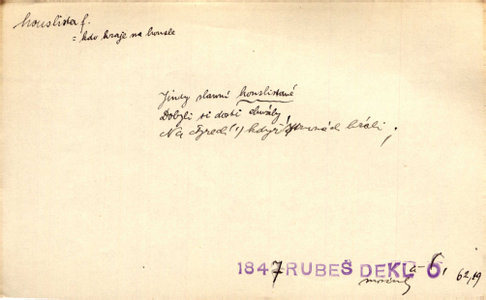 houslista f.
= kdo hraje na housle
Jindy slavní houslistové
Dobyli si dosti chvály
Na
když
hráli,
1847 RUBEŠ DEKL a 6,
62,19